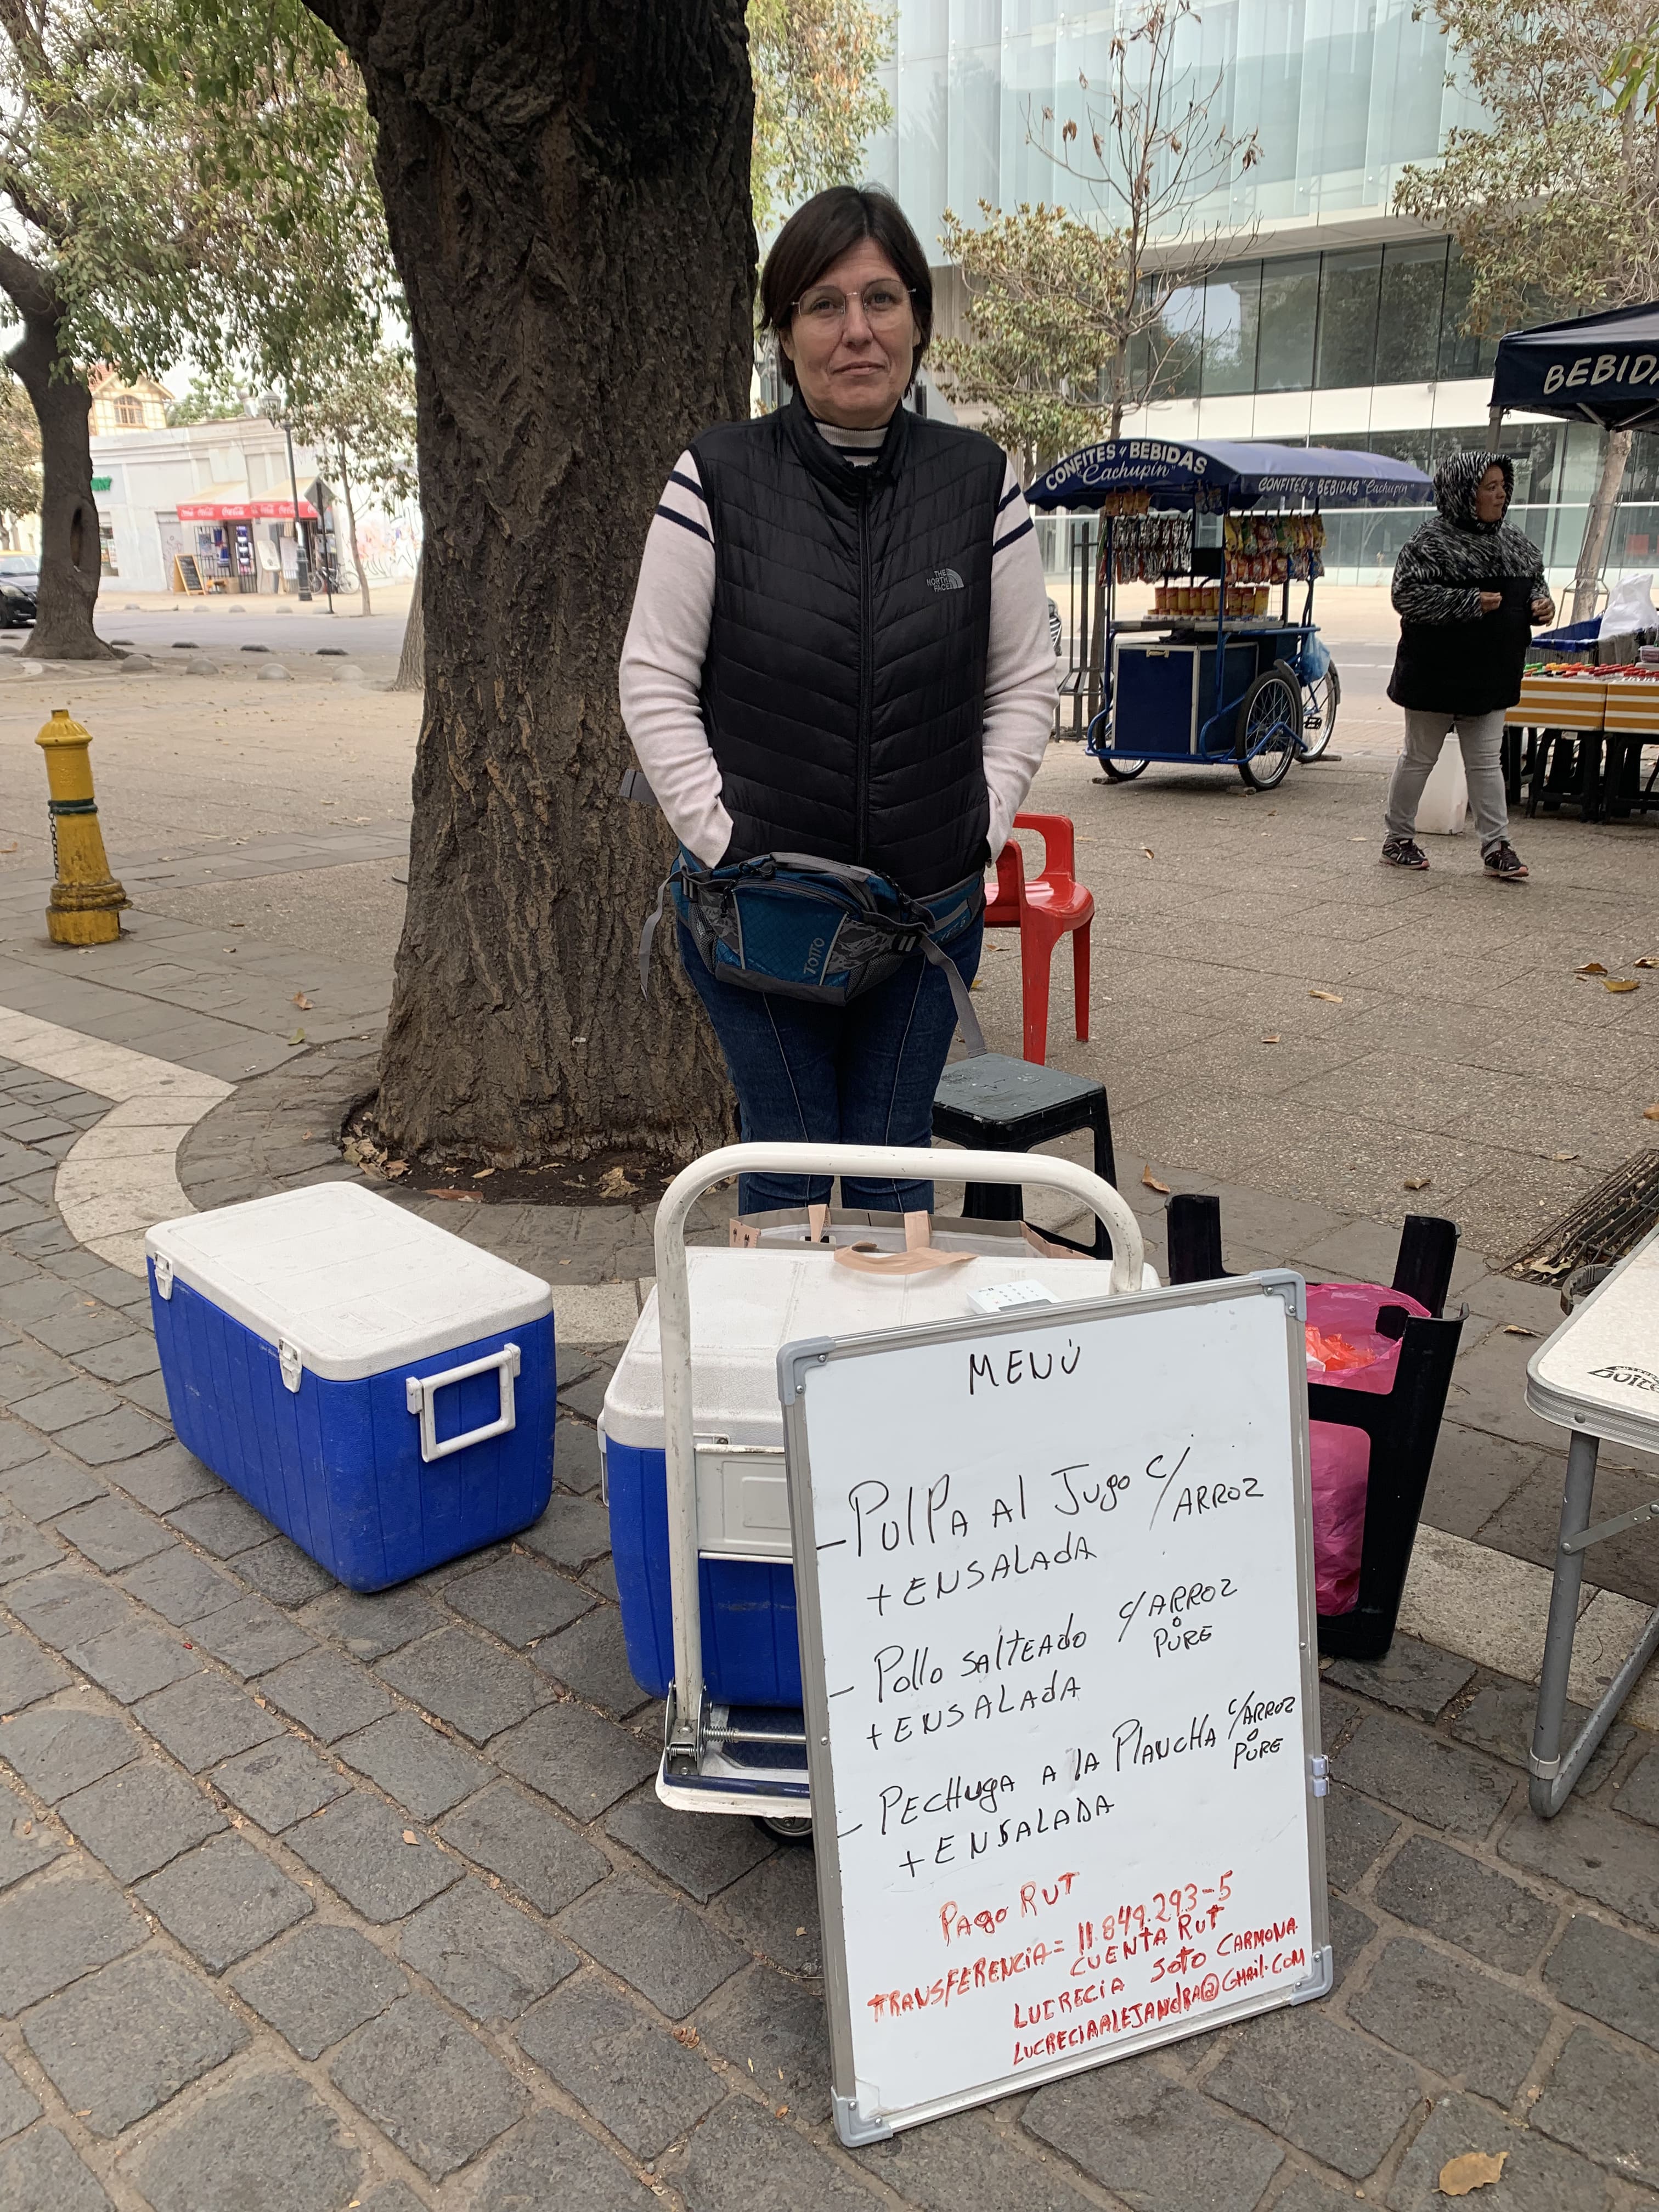 CONFITES Y BEBIDAS
"Cachupin"
CONFITES Y BEBIDAS "Cachupin"
THE
NORTH
FACE
TOTTO
MENÚ
- PULPA AL JUGO C/ ARROZ
+ ENSALADA
- Pollo SALTEADO C/ ARROZ
Ó
PURE
+ ENSALADA
- PECHUGA A LA PLANCHA C/ ARROZ
Ó
PURE
+ ENSALADA
PAGO RUT
TRANSFERENCIA = 11.849.293-5
CUENTA RUT
LUCRECIA SOTO CARMONA
LUCRECIAALEJANDRA@GMAIL.COM